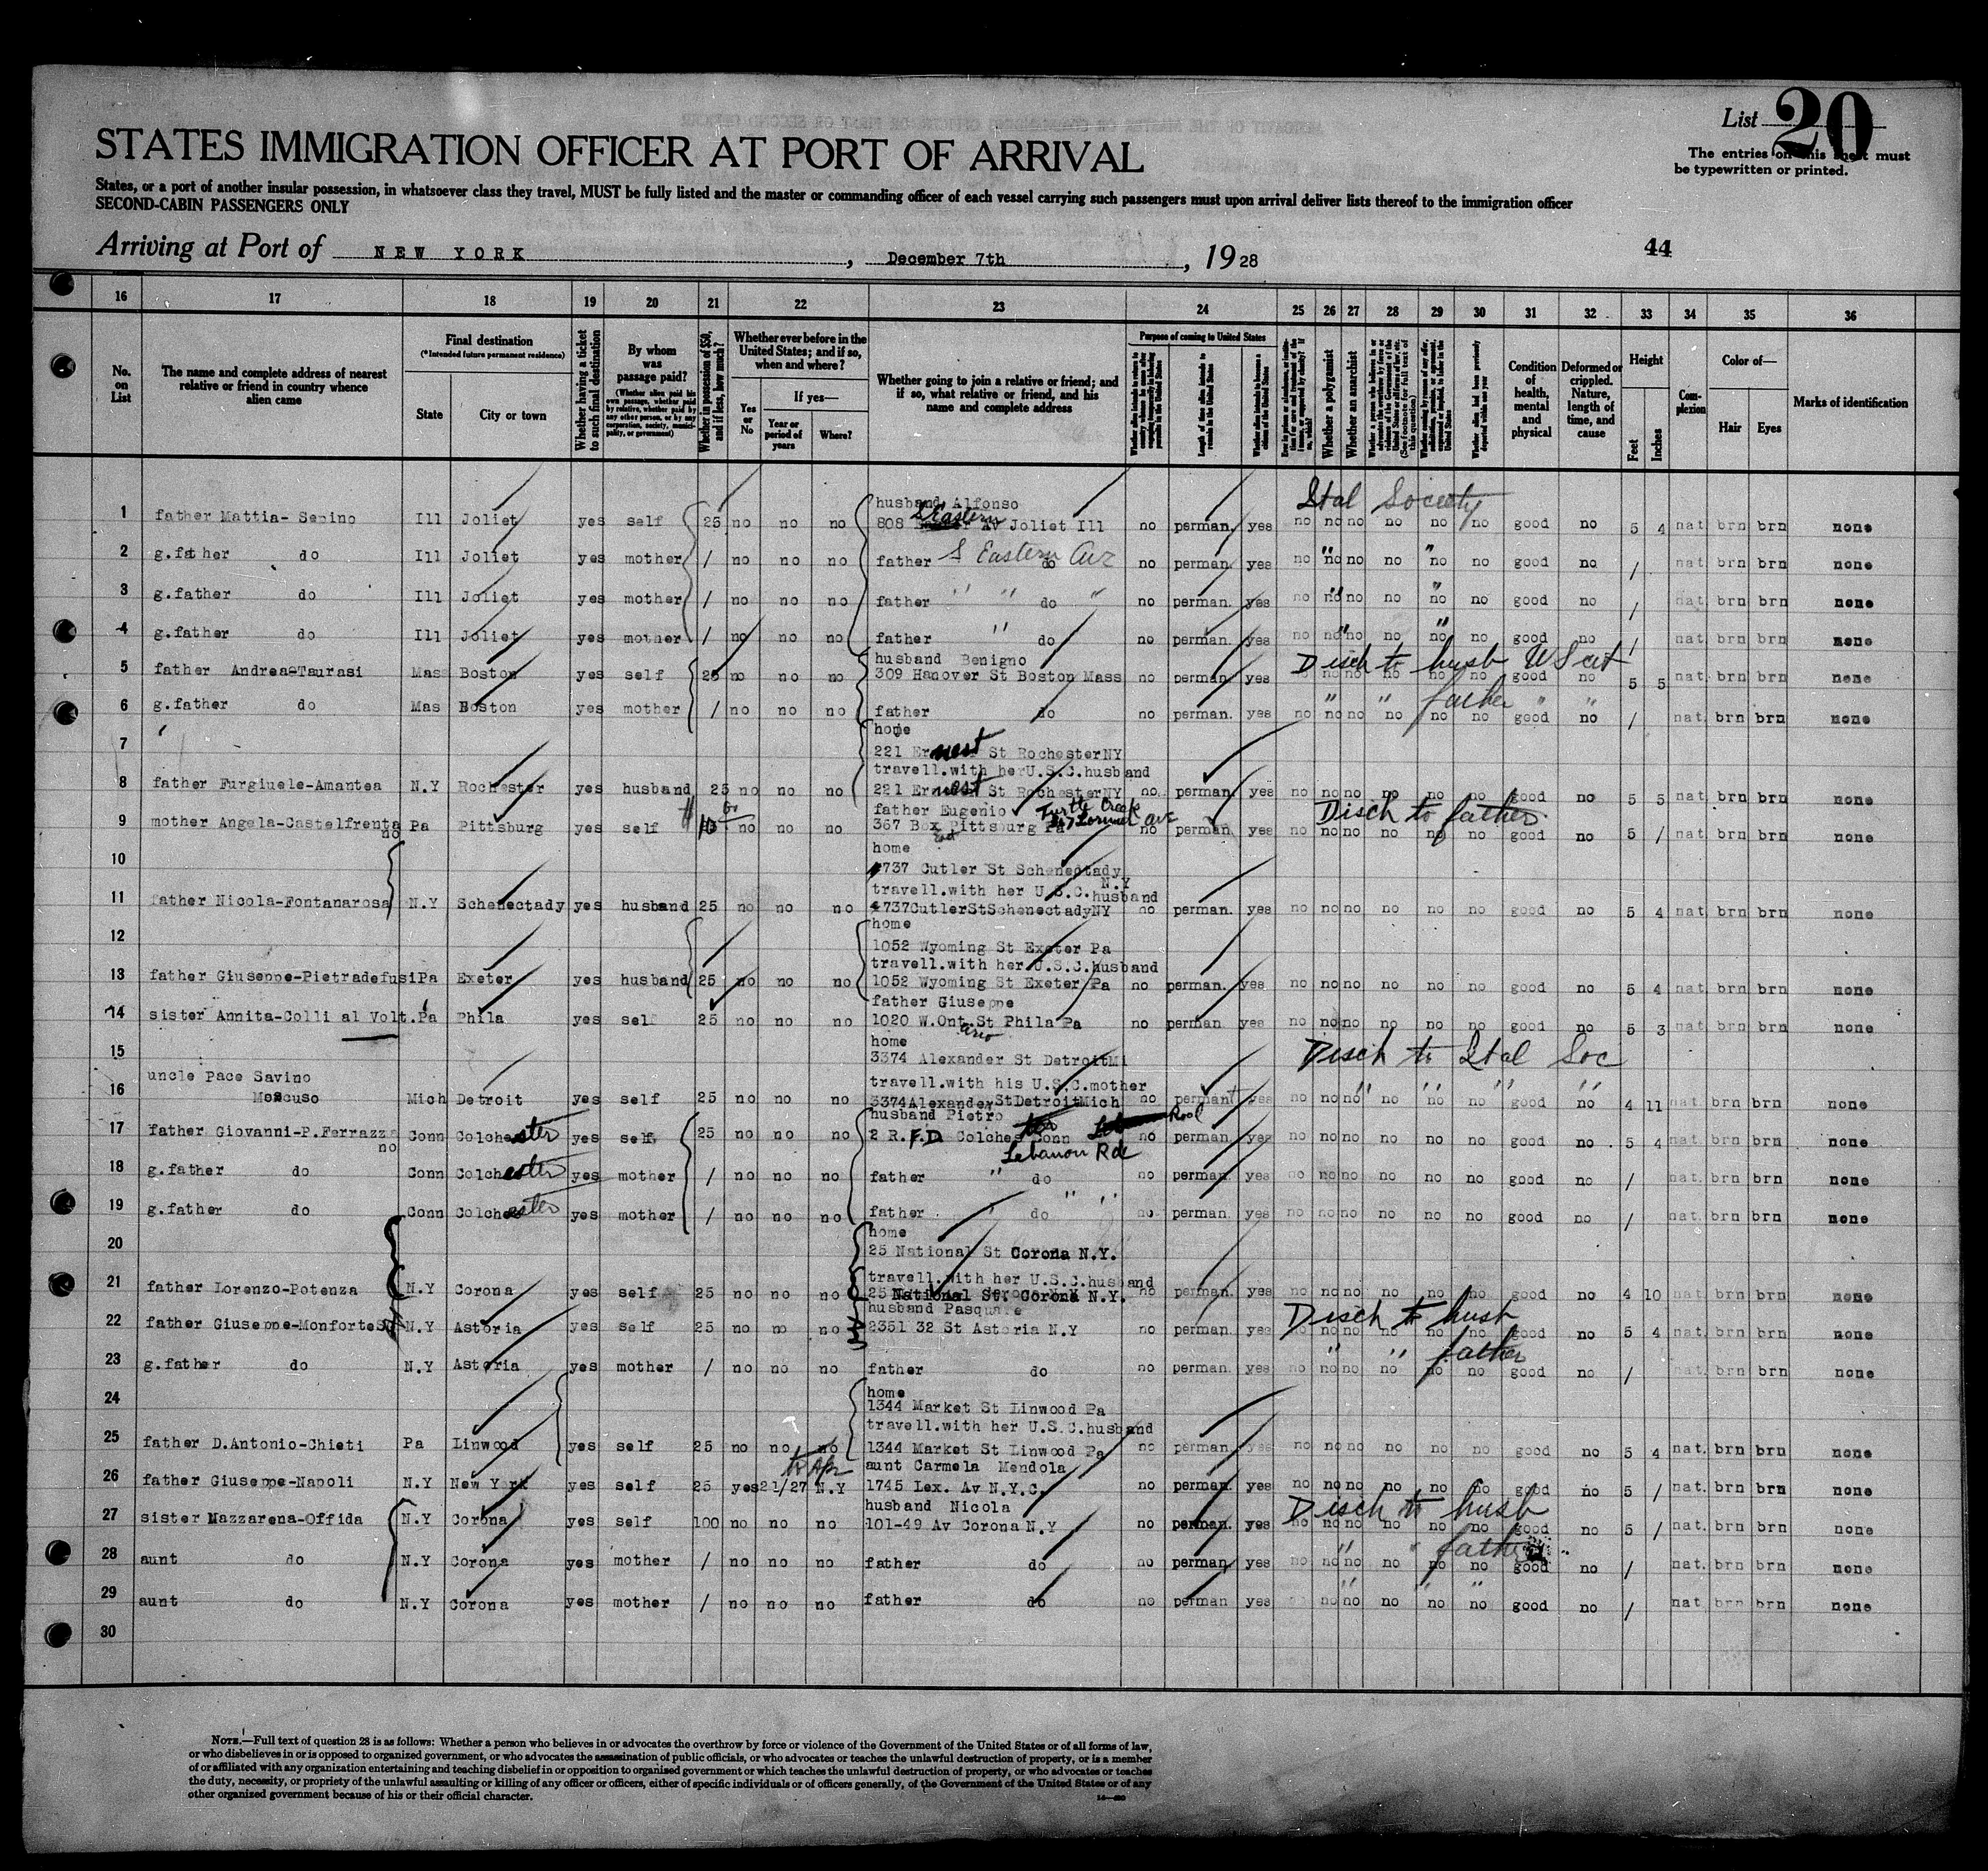 List 20
The entries on this sheet must
be typewritten or printed.
STATES IMMIGRATION OFFICER AT PORT OF ARRIVAL
States, or a port of another insular possession, in whatsoever class they travel, MUST be fully listed and the master or commanding officer of each vessel carrying such passengers must upon arrival deliver lists thereof to the immigration officer
SECOND-CABIN PASSENGERS ONLY
Arriving at Port of NEW YORK, December 7th, 1928
44
16 17 18 19 20 21 22 23 24 25 26 27 28 29 30 31 32 33 34 35 36
No. on List
The name and complete address of nearest relative or friend in country whence alien came
Final destination
(*Intended future permanent residence)
State
City or town
Whether having a ticket to such final destination
By whom was passage paid?
(Whether alien paid his own passage, whether paid by relative, whether paid by any other person, or by any corporation, society, municipality, or government)
Whether in possession of $50, and if less, how much?
Whether ever before in the United States; and if so, when and where?
Yes or No
If yes—
Year or period of years
Where?
Whether going to join a relative or friend; and if so, what relative or friend, and his name and complete address
Purpose of coming to United States
Length of time alien intends to remain in the United States
Whether a polygamist
Whether an anarchist
Condition of health, mental and physical
Deformed or crippled. Nature, length of time, and cause
Height
Feet
Inches
Complexion
Color of—
Hair
Eyes
Marks of identification
Ital Society
husband Alfonso
1 father Mattia- Sepino Ill Joliet yes self 25 no no no 808 S Eastern Av Joliet Ill no perman. yes no no no no no no good no 5 4 nat brn brn none
2 g.father do Ill Joliet yes mother / no no no father S Eastern Ave do no perman. yes no no no no no no good no / nat brn brn none
3 g.father do Ill Joliet yes mother / no no no father " " do " no perman. yes no no no no no no good no / nat brn brn none
4 g.father do Ill Joliet yes mother / no no no father " do no perman. yes no no no no no no good no / nat brn brn none
husband Benigno Disch to husb U S cit
5 father Andrea-Taurasi Mas Boston yes self 25 no no no 309 Hanover St Boston Mass no perman. yes no no no no no no good no 5 5 nat brn brn none
" " father " "
6 g.father do Mas Boston yes mother / no no no father do no perman. yes no no no no no no good no / nat brn brn none
home
7 221 Ernest St Rochester NY
travell.with her U.S.C.husband
8 father Furgiuele-Amantea N.Y Rochester yes husband 25 no no no 221 Ernest St Rochester NY no perman. yes no no no no no no good no 5 5 nat brn brn none
father Eugenio Turtle Creek Disch to father
9 mother Angela-Castelfrentano Pa Pittsburg yes self no no no 367 Box Pittsburg Pa no perman. yes no no no no no no good no 5 / nat brn brn none
home
10 1737 Cutler St Schenectady N.Y
travell.with her U.S.C.husband
11 father Nicola-Fontanarosa N.Y Schenectady yes husband 25 no no no 1737 Cutler St Schenectady NY no perman. yes no no no no no no good no 5 4 nat brn brn none
home
12 1052 Wyoming St Exeter Pa
travell.with her U.S.C.husband
13 father Giuseppe-Pietradefusi Pa Exeter yes husband 25 no no no 1052 Wyoming St Exeter Pa no perman. yes no no no no no no good no 5 4 nat brn brn none
father Giuseppe
14 sister Annita-Colli al Volt. Pa Phila yes self 25 no no no 1020 W.Ont.St Phila Pa no perman yes no no no no no no good no 5 3 nat brn brn none
ario
home Disch to Ital Soc
15 3374 Alexander St Detroit Mi
uncle Pace Savino travell.with his U.S.C.mother " " " "
16 Moscuso Mich Detroit yes self 25 no no no 3374 Alexander St Detroit Mich no perman yes no no no no no no good no 4 11 nat brn brn none
husband Pietro
17 father Giovanni-P.Ferrazzano Conn Colchester yes self 25 no no no 2 R.F.D. Colches Conn no perman. yes no no no no no no good no 5 4 nat brn brn none
Lebanon Rd
18 g.father do Conn Colchester yes mother / no no no father " do no perman yes no no no no no no good no / nat brn brn none
19 g.father do Conn Colchester yes mother / no no no father " " do no perman. yes no no no no no no good no / nat. brn brn none
home
20 25 National St Corona N.Y.
travell.with her U.S.C.husband
21 father Lorenzo-Potenza N.Y Corona yes self 25 no no no 25 National St. Corona N.Y. no perman. yes no no no no no no good no 4 10 nat brn brn none
husband Pasquare Disch to husb
22 father Giuseppe-Monforte N.Y Astoria yes self 25 no no no 2351 32 St Astoria N.Y no perman. yes no no no no no no good no 5 4 nat brn brn none
" " father
23 g.father do N.Y Astoria yes mother / no no no father do no perman. yes no no no no no no good no / nat brn brn none
home
24 1344 Market St Linwood Pa
travell.with her U.S.C.husband
25 father D.Antonio-Chieti Pa Linwood yes self 25 no no no 1344 Market St Linwood Pa no perman. yes no no no no no no good no 5 4 nat. brn brn none
aunt Carmela Mendola
26 father Giuseppe-Napoli N.Y New York yes self 25 yes 21/27 N.Y 1745 Lex. Av N.Y.C. no perman. yes no no no no no no good no 5 / nat. brn brn none
husband Nicola Disch to husb
27 sister Nazzarena-Offida N.Y Corona yes self 100 no no no 101-49 Av Corona N.Y no perman. yes no no no no no no good no 5 / nat. brn brn none
" " father
28 aunt do N.Y Corona yes mother / no no no father do no perman. yes no no no no no no good no / nat. brn brn none
" " "
29 aunt do N.Y Corona yes mother / no no no father do no perman yes no no no no no good no / nat brn brn none
30
NOTE.—Full text of question 28 is as follows: Whether a person who believes in or advocates the overthrow by force or violence of the Government of the United States or of all forms of law,
or who disbelieves in or is opposed to organized government, or who advocates the assassination of public officials, or who advocates or teaches the unlawful destruction of property, or is a member
of or affiliated with any organization entertaining and teaching disbelief in or opposition to organized government or which teaches the unlawful destruction of property, or who advocates or teaches
the duty, necessity, or propriety of the unlawful assaulting or killing of any officer or officers, either of specific individuals or of officers generally, of the Government of the United States or of any
other organized government because of his or their official character.